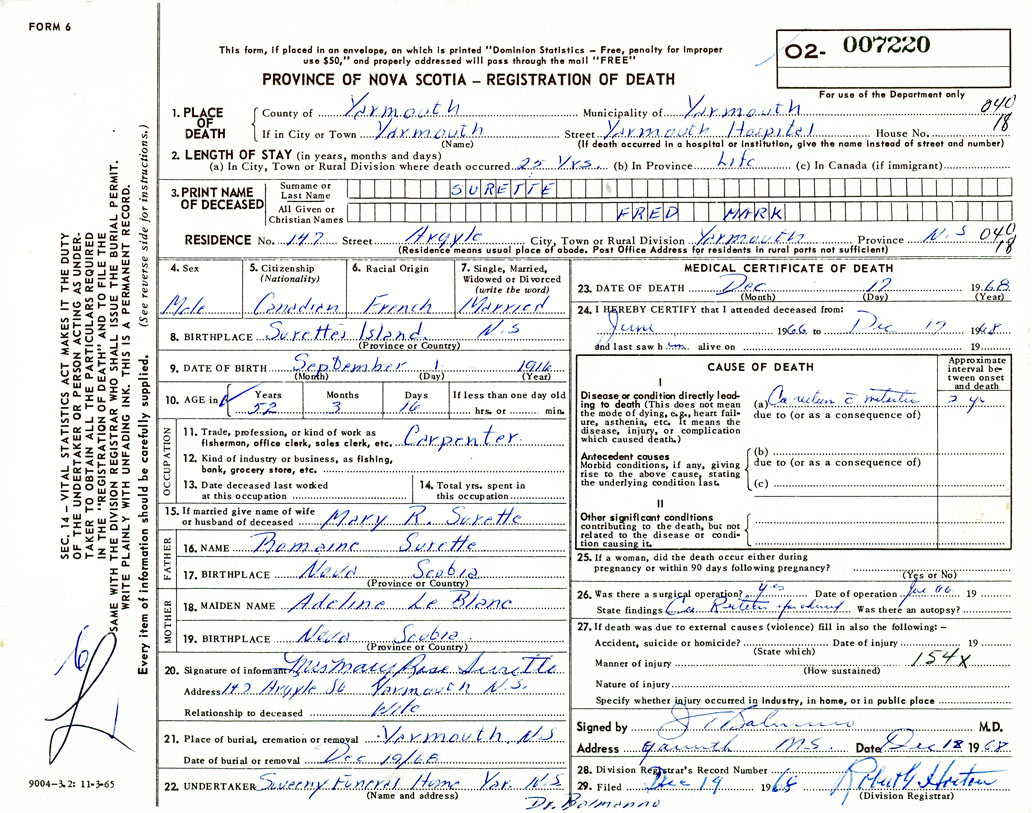 FORM 6
This form, if placed in an envelope, on which is printed "Dominion Statistics — Free, penalty for improper
use $50," and properly addressed will pass through the mail "FREE"
PROVINCE OF NOVA SCOTIA — REGISTRATION OF DEATH
02- 007220
For use of the Department only
1. PLACE OF DEATH
County of Yarmouth Municipality of Yarmouth 040
If in City or Town Yarmouth Street Yarmouth Hospital House No. 18
(Name) (If death occurred in a hospital or institution, give the name instead of street and number)
2. LENGTH OF STAY (in years, months and days)
(a) In City, Town or Rural Division where death occurred 25 Yrs. (b) In Province Life (c) In Canada (if immigrant)
3. PRINT NAME OF DECEASED
Surname or Last Name SURETTE
All Given or Christian Names FRED MARK
RESIDENCE No. 147 Street Argyle City, Town or Rural Division Yarmouth Province N.S 040
(Residence means usual place of abode. Post Office Address for residents in rural parts not sufficient) 18
4. Sex
Male
5. Citizenship
(Nationality)
Canadian
6. Racial Origin
French
7. Single, Married,
Widowed or Divorced
(write the word)
Married
8. BIRTHPLACE Surettes Island. N.S
(Province or Country)
9. DATE OF BIRTH September 1 1916
(Month) (Day) (Year)
10. AGE in
Years Months Days If less than one day old
52 3 16 hrs. or min.
OCCUPATION
11. Trade, profession, or kind of work as
fisherman, office clerk, sales clerk, etc. Carpenter
12. Kind of industry or business, as fishing,
bank, grocery store, etc.
13. Date deceased last worked
at this occupation
14. Total yrs. spent in
this occupation
15. If married give name of wife
or husband of deceased Mary R. Surette
FATHER
16. NAME Romaine Surette
17. BIRTHPLACE Nova Scotia
(Province or Country)
MOTHER
18. MAIDEN NAME Adeline Le Blanc
19. BIRTHPLACE Nova Scotia
(Province or Country)
20. Signature of informant Mrs Mary Rose Surette
Address 147 Argyle St Yarmouth N.S.
Relationship to deceased Wife
21. Place of burial, cremation or removal Yarmouth, N.S
Date of burial or removal Dec 19/68
22. UNDERTAKER Sweeny Funeral Home Yar. N.S
(Name and address)
Dr. Balmanno
MEDICAL CERTIFICATE OF DEATH
23. DATE OF DEATH Dec 17 1968
(Month) (Day) (Year)
24. I HEREBY CERTIFY that I attended deceased from:
June 1966 to Dec 17 1968
and last saw h alive on 19
CAUSE OF DEATH
Approximate
interval be-
tween onset
and death
I
Disease or condition directly lead-
ing to death (This does not mean
the mode of dying, e.g., heart fail-
ure, asthenia, etc. It means the
disease, injury, or complication
which caused death.)
(a) Ca rectum 2 yr
due to (or as a consequence of)
Antecedent causes
Morbid conditions, if any, giving
rise to the above cause, stating
the underlying condition last.
(b)
due to (or as a consequence of)
(c)
II
Other significant conditions
contributing to the death, but not
related to the disease or condi-
tion causing it.
25. If a woman, did the death occur either during
pregnancy or within 90 days following pregnancy?
(Yes or No)
26. Was there a surgical operation? yes Date of operation June 66 19
State findings Ca Was there an autopsy?
27. If death was due to external causes (violence) fill in also the following: —
Accident, suicide or homicide? Date of injury 19
(State which)
Manner of injury 154X
(How sustained)
Nature of injury
Specify whether injury occurred in industry, in home, or in public place
Signed by M.D.
Address Yarmouth N.S. Date Dec 18 1968
28. Division Registrar's Record Number
29. Filed Dec 19 1968 Robert G Horton
(Division Registrar)
SEC. 14 – VITAL STATISTICS ACT MAKES IT THE DUTY
OF THE UNDERTAKER OR PERSON ACTING AS UNDER-
TAKER TO OBTAIN ALL THE PARTICULARS REQUIRED
IN THE "REGISTRATION OF DEATH" AND TO FILE THE
SAME WITH THE DIVISION REGISTRAR WHO SHALL ISSUE THE BURIAL PERMIT.
WRITE PLAINLY WITH UNFADING INK. THIS IS A PERMANENT RECORD.
Every item of information should be carefully supplied. (See reverse side for instructions.)
9004–3.2: 11-3-65